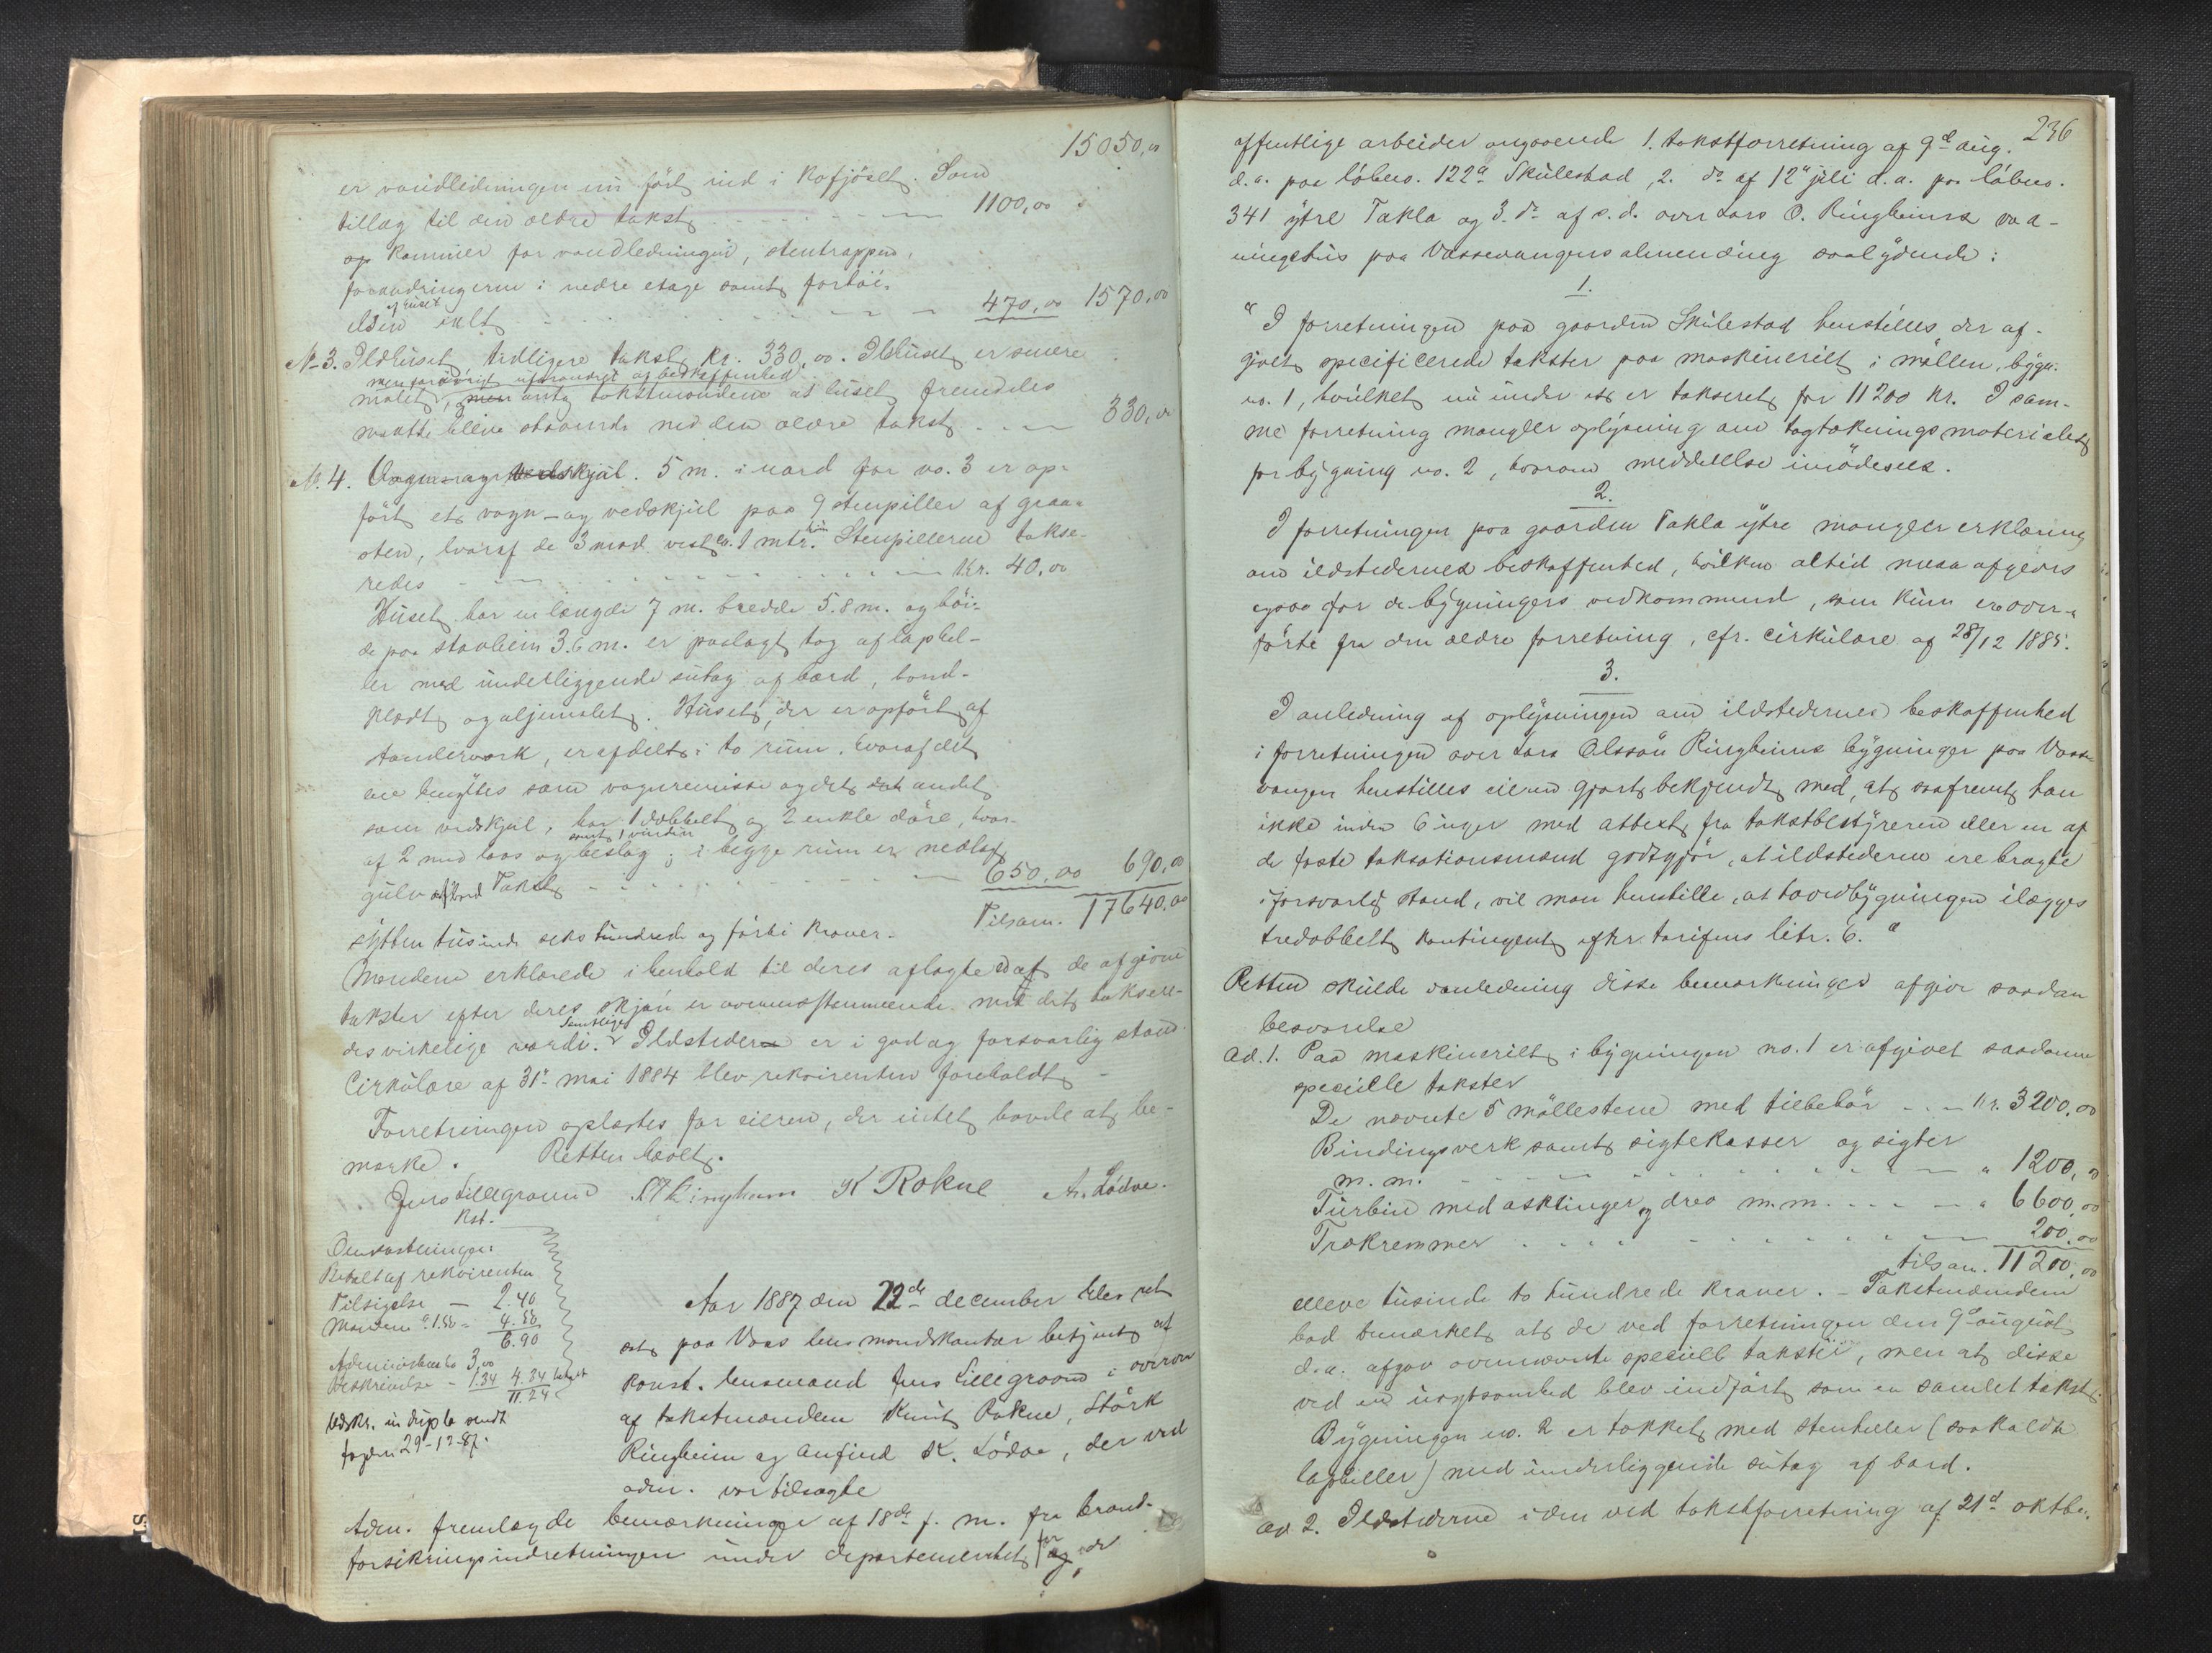 15050,00
er vandledningen nu ført ind i kofjöset. Som
tillæg til den ældre takst 1100,00
og kommer for vandledningen, stentrappen,
forandringerne i nedre etage samt forhöi-
elsen af huset enkelt 470,00 1570,00
No 3. Ildhuset tidligere takst kr. 330,00. Ildhuset er senere
malet, men forövrigt uforandret af beskaffenhed, antog takstmændene at huset fremdeles
maatte blive staaende ved den ældre takst 330,00
No 4. Vogn- og vedskjul. 5 m. i nord for no. 3 er op-
fört et vogn- og vedskjul paa 9 stenpiller af graa-
sten, hvoraf de 3 mod vest ca. 1 mtr. höie. Stenpillerne takse-
redes kr. 40,00
Huset har en længde 7 m. bredde 5.8 m. og höi-
de paa stavlein 3.6 m. er paalagt tag af laphel-
ler med underliggende sutag af bord, bord-
klædt og oljemalet. Huset, der er opfört af
tømderverk, er afdelt i to rum, hvoraf det
ene benyttes som vognremisse og det andet
som vedskjul, har 1 dobbelt og 2 enkle döre, hvor-
af 2 med laas og beslag samt 1 vindu; i begge rum er nedlagt
gulv af bord Takst 650,00 690,00
Tilsam. 17640,00
sytten tusinde seks hundrede og førti kroner.
Mændene erklærede i henhold til deres aflagte ed at de afgivne
takster efter deres skjøn er overensstemmende med det takse-
redes virkelige værdi. Samtlige Ildsteder er i god og forsvarlig stand
Cirkulære af 31te mai 1884 blev rekvirenten foreholdt
Forretningen oplæstes for eieren, der intet havde at be-
mærke. Retten hævet.
Jens Lillegraven S. Ringheim K Rokne A. Lödve.
Kst.
Omkostninger
Betalt af rekvirenten
Tilsigelse – 2.40
Mændene à 1.50 = 4.50
6.90
Administrator 3,00
Beskrivelse – 1.34 4.34
11.24
Udskr. in duplo sendt
fogden 29-12-87.
Aar 1887 den 22de december blev ret
sat paa Voss lensmandskontor betjent af
konst. lensmand Jens Lillegraven i overvær
af takstmændene Knut Rokne, Störk
Ringheim og Anfind K. Lödve, der ved
adm. var tilsagte
Adm. fremlagde bemærkninger af 18de f. m. fra brand-
forsikringsindretningen under departementet for
236
offentlige arbeider angaaende 1. takstforretning af 9de aug.
d.a. paa löbeno. 122a Skulestad, 2. do af 12te juli d.a. paa löbeno.
341 ytre Takla og 3. do af s.d. over Lars O. Ringheims vaa-
ningshus paa Vossevangens almending saalydende:
1.
"I forretningen paa gaarden Skulestad henstilles der af-
givet specificerede takster paa maskineriet i möllen, bygn.
no. 1, hvilket nu under et er takseret for 11200 kr. I sam-
me forretning mangler oplysning om tagtækningsmaterialet
for bygning no. 2, hvorom meddelelse imödesees.
2.
I forretningen paa gaarden Takla ytre mangler erklæring
om ildstedernes beskaffenhed, hvilken altid maa afgives
ogsaa for de bygningers vedkommende, som kun er over-
førte fra den ældre forretning, cfr. cirkulære af 28/12 1885.
3.
I anledning af oplysningen om ildstedernes beskaffenhed
i forretningen over Lars Olssön Ringheims bygninger paa Vosse-
vangen henstilles eieren gjort bekjendt med, at saafremt han
ikke inden 6 uger med attest fra takstbestyreren eller en af
de faste taksationsmænd godtgjør, at ildstederne ere bragte
i forsvarlig stand, vil man henstille, at hovedbygningen ilægges
tredobbelt kontingent efter tarifens litr. 6."
Retten skulde i anledning disse bemærkninger afgive saadan
besvarelse
ad. 1. Paa maskineriet i bygningen no. 1 er afgivet saadanne
specielle takster
De nævnte 5 möllestene med tilbehör kr. 3200,00
Bindingsverk samt sigtekasser og sigter
m. m. " 1200,00
Turbin med akslinger og drev m.m. " 6600,00
Trækremmer 200,00
tilsam. 11200,00
elleve tusinde to hundrede kroner. – Takstmændene
bad bemærket, at de ved forretningen den 9de august
d.a. afgav ovennævnte specielle takster, men at disse
ved en uagtsomhed blev indfört som en samlet takst.
Bygningen no. 2 er tækket med stenheller (saakaldte
lapheller) med underliggende sutag af bord.
ad 2. Ildstederne i den ved takstforretning af 21de oktbr.